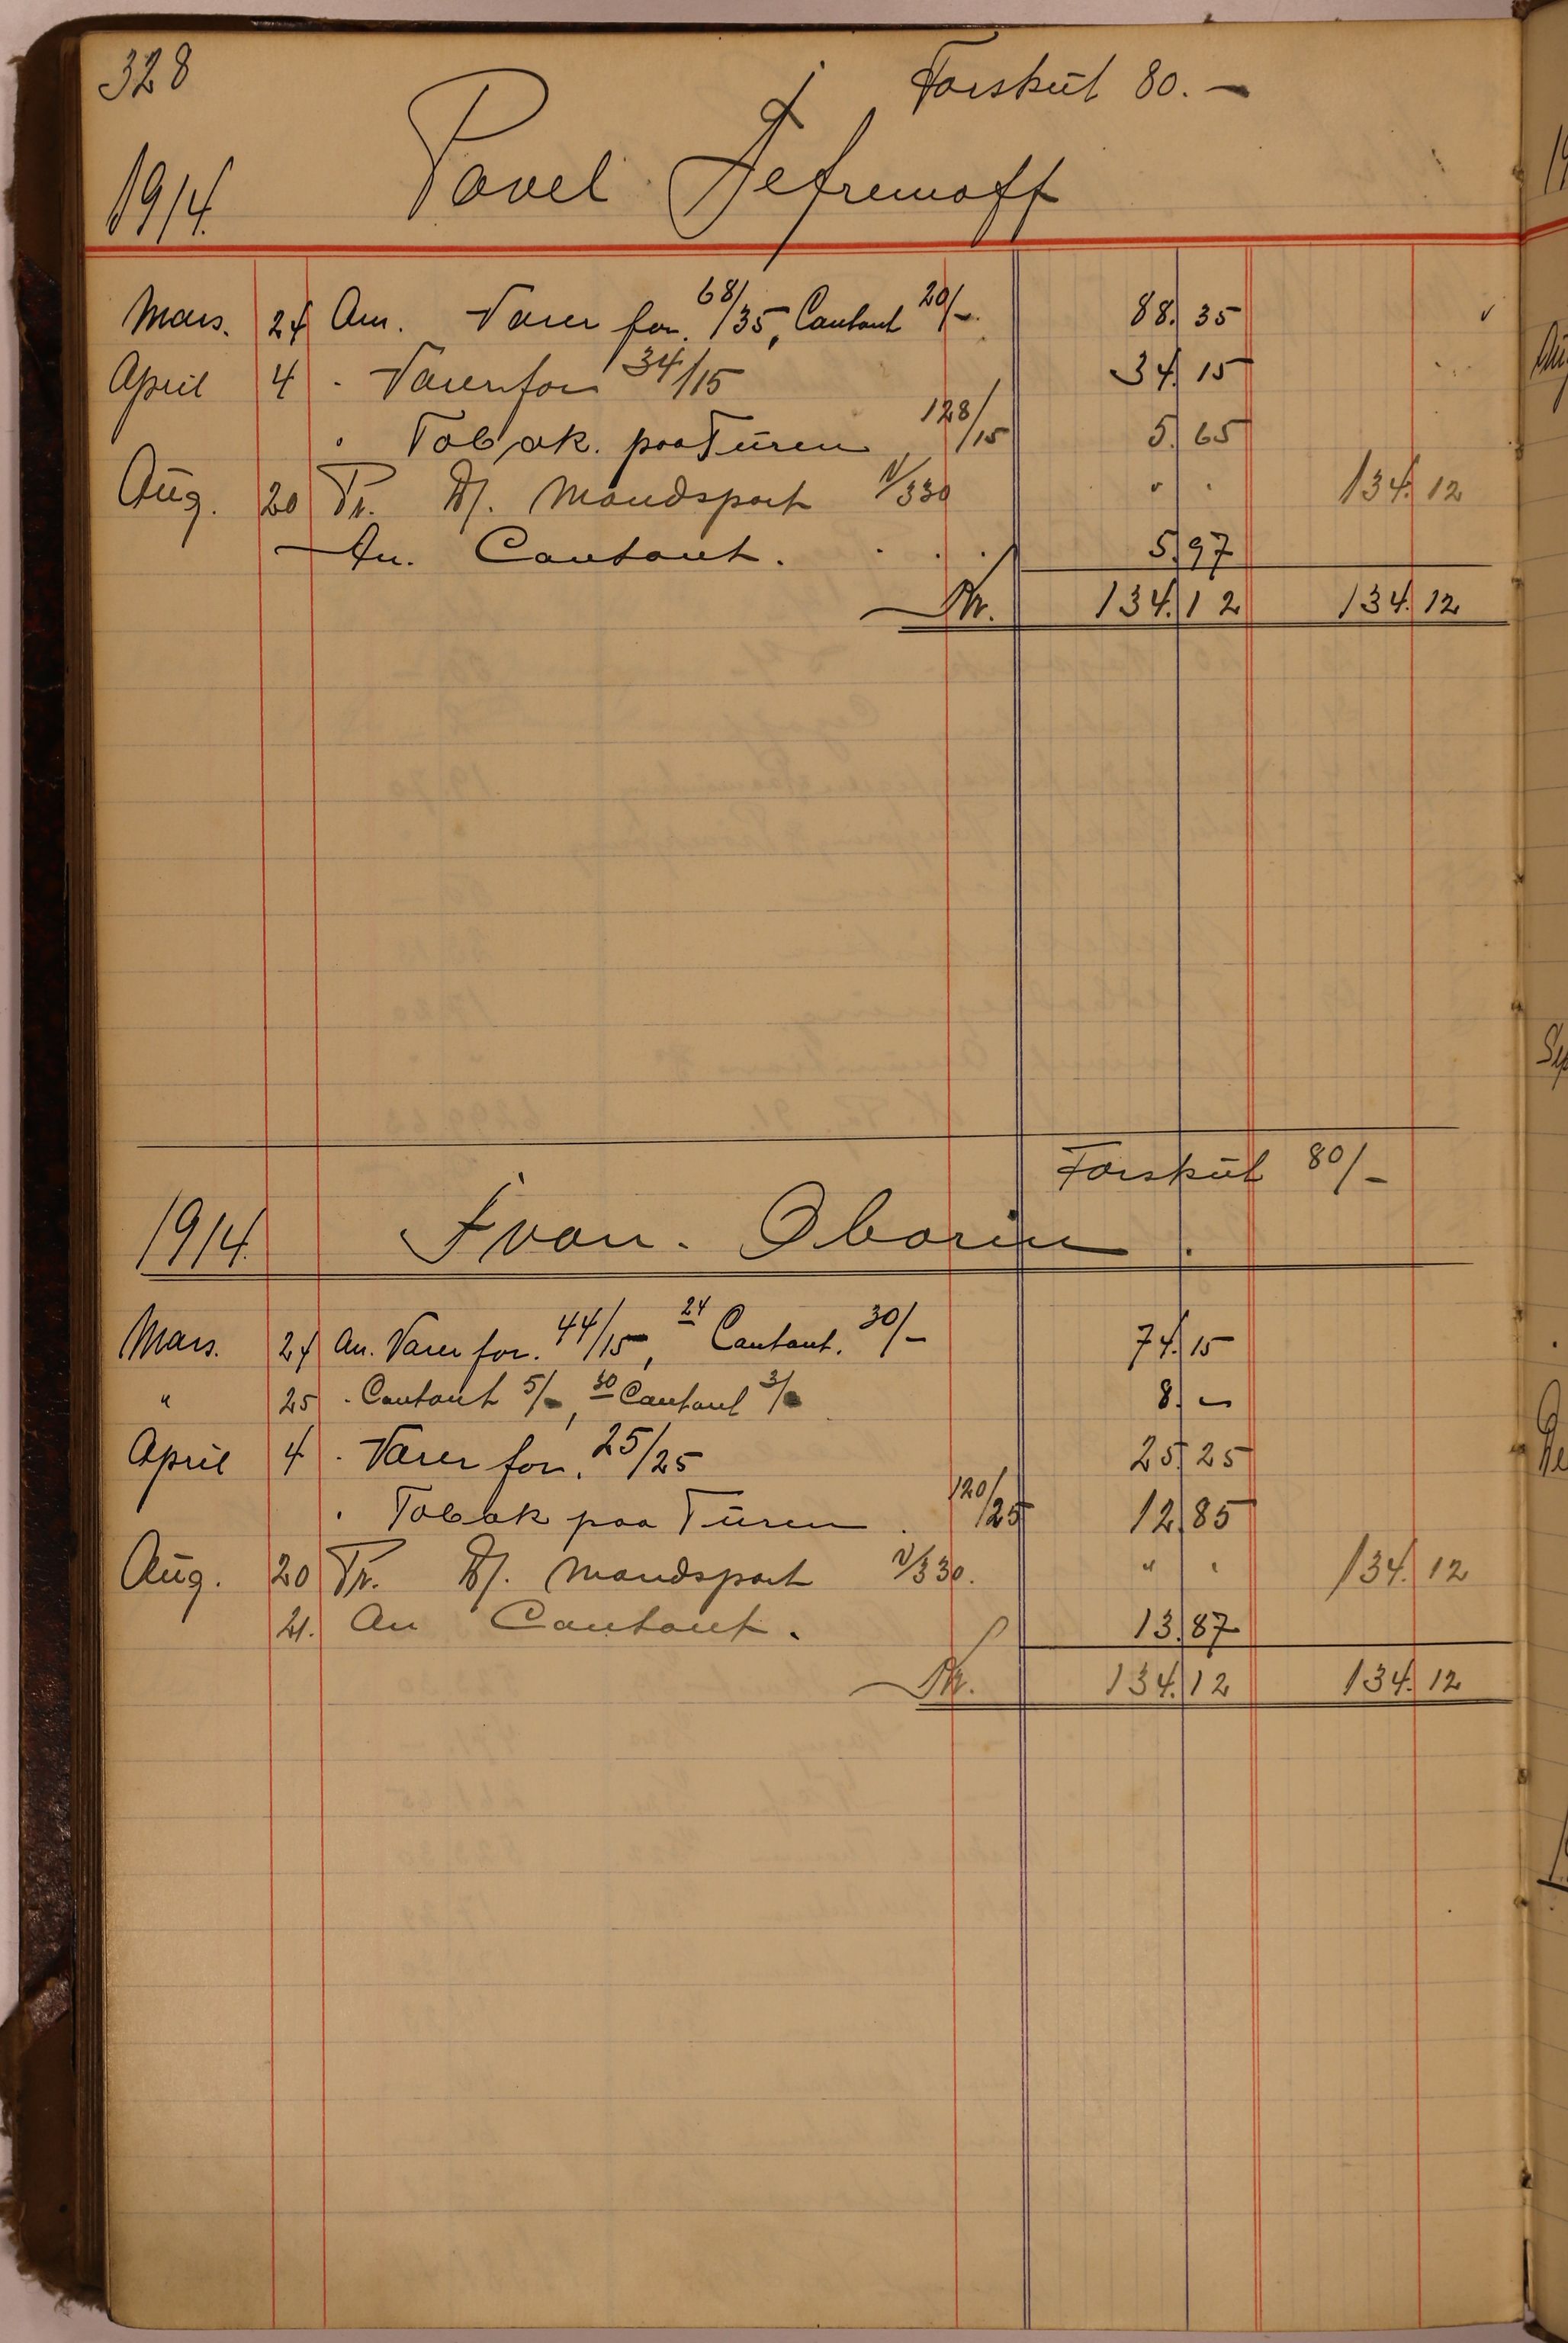 328 Forsküt 80.–
1914. Pavel Jefremoff
Mars. 24 An. Varer for. 68/35, Contant 20/–. 88. 35
April 4 . Varer for 34/15 34. 15
. Tobak. paa Türen 128/15 5. 65
Aug. 20 Pr. D/. Mandspart V/330 " . 134. 12
— An. Contant. . . . 5.97
Kr. 134.12 134. 12
Forsküt 80/–
1914. Ivan. Oborin.
Mars. 24 An. Varer for. 44/15, 24 Contant. 30/– 74. 15
" 25 . Contant 5/–, 30 Contant 3/– 8. –
April 4 . Varer for. 25/25 25. 25
. Tobak paa Türen . 120/25 12.85
Aug. 20 Pr. D/. Mandspart V/330. " . 134. 12
21. An Contant. 13.87
Kr. 134.12 134. 12